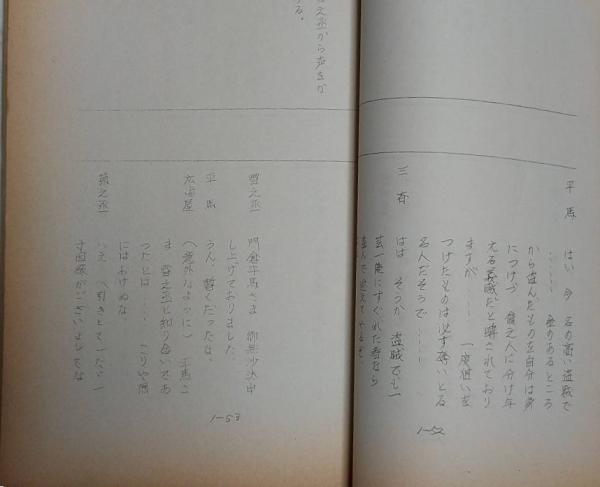 平馬　はい　今　名の高い盗賊で
……　金のあるところ
から盗んだものを自分は身
につけず　貧乏人に分け与
える義賊だと噂されており
ますが……　一度狙いを
つけたものは必ず奪いとる
名人だそうで……
三斉　はは　そうか　盗賊でも一
芸一能にすぐれた者なら
1-52
え丞から声をか
る。
雪之丞　門倉平馬さま　御無沙汰申
し上げておりました。
平馬　うん、暫くだったな。
広海屋　(意外なように)　平馬さ
ま　雪之丞と知り合いであ
ったとは……　こりや隅
にはおけぬな
引きとて
寸因縁がございましてな
1-53